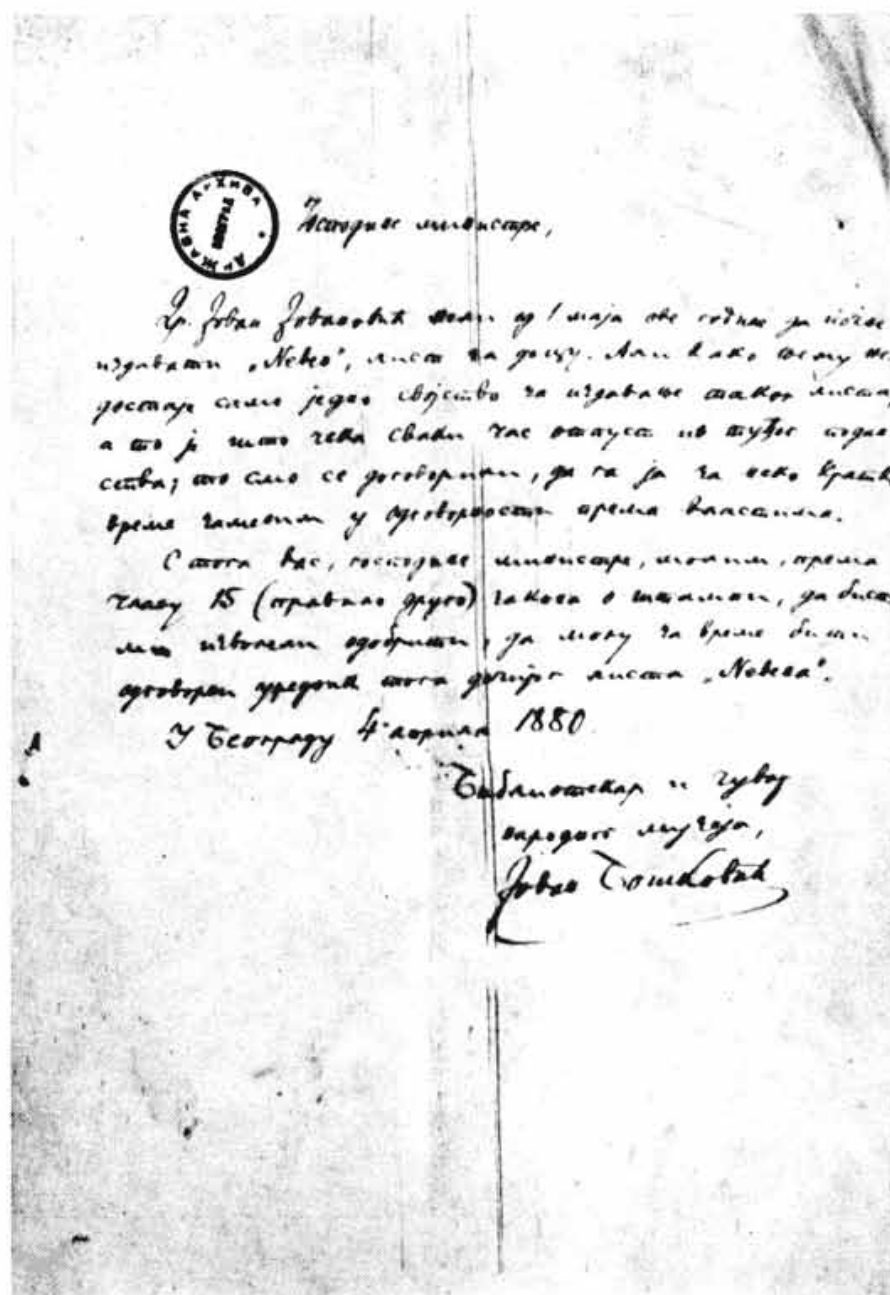 ДРЖАВНА АРХИВА
БЕОГРАД
Господине министре,
Др. Јован Јовановић мисли од 1 маја ове године да почне
издавати „Невен", лист за децу. Али како њему не
достаје само једно својство за издавање таког листа,
а то је што чека сваки час отпуст из туђег подан
ства; то смо се договорили, да га ја за неко кратко
време заменим у одговорности према властима.
С тога вас, господине министре, молим, према
члану 15 (правило друго) закона о штампи, да бисте
ми изволели одобрити, да могу за време бити
одговорни уредник тога дечијег листа „Невена".
У Београду 4 априла 1880
Библиотекар и чувар
народног музеја,
Јован Бошковић